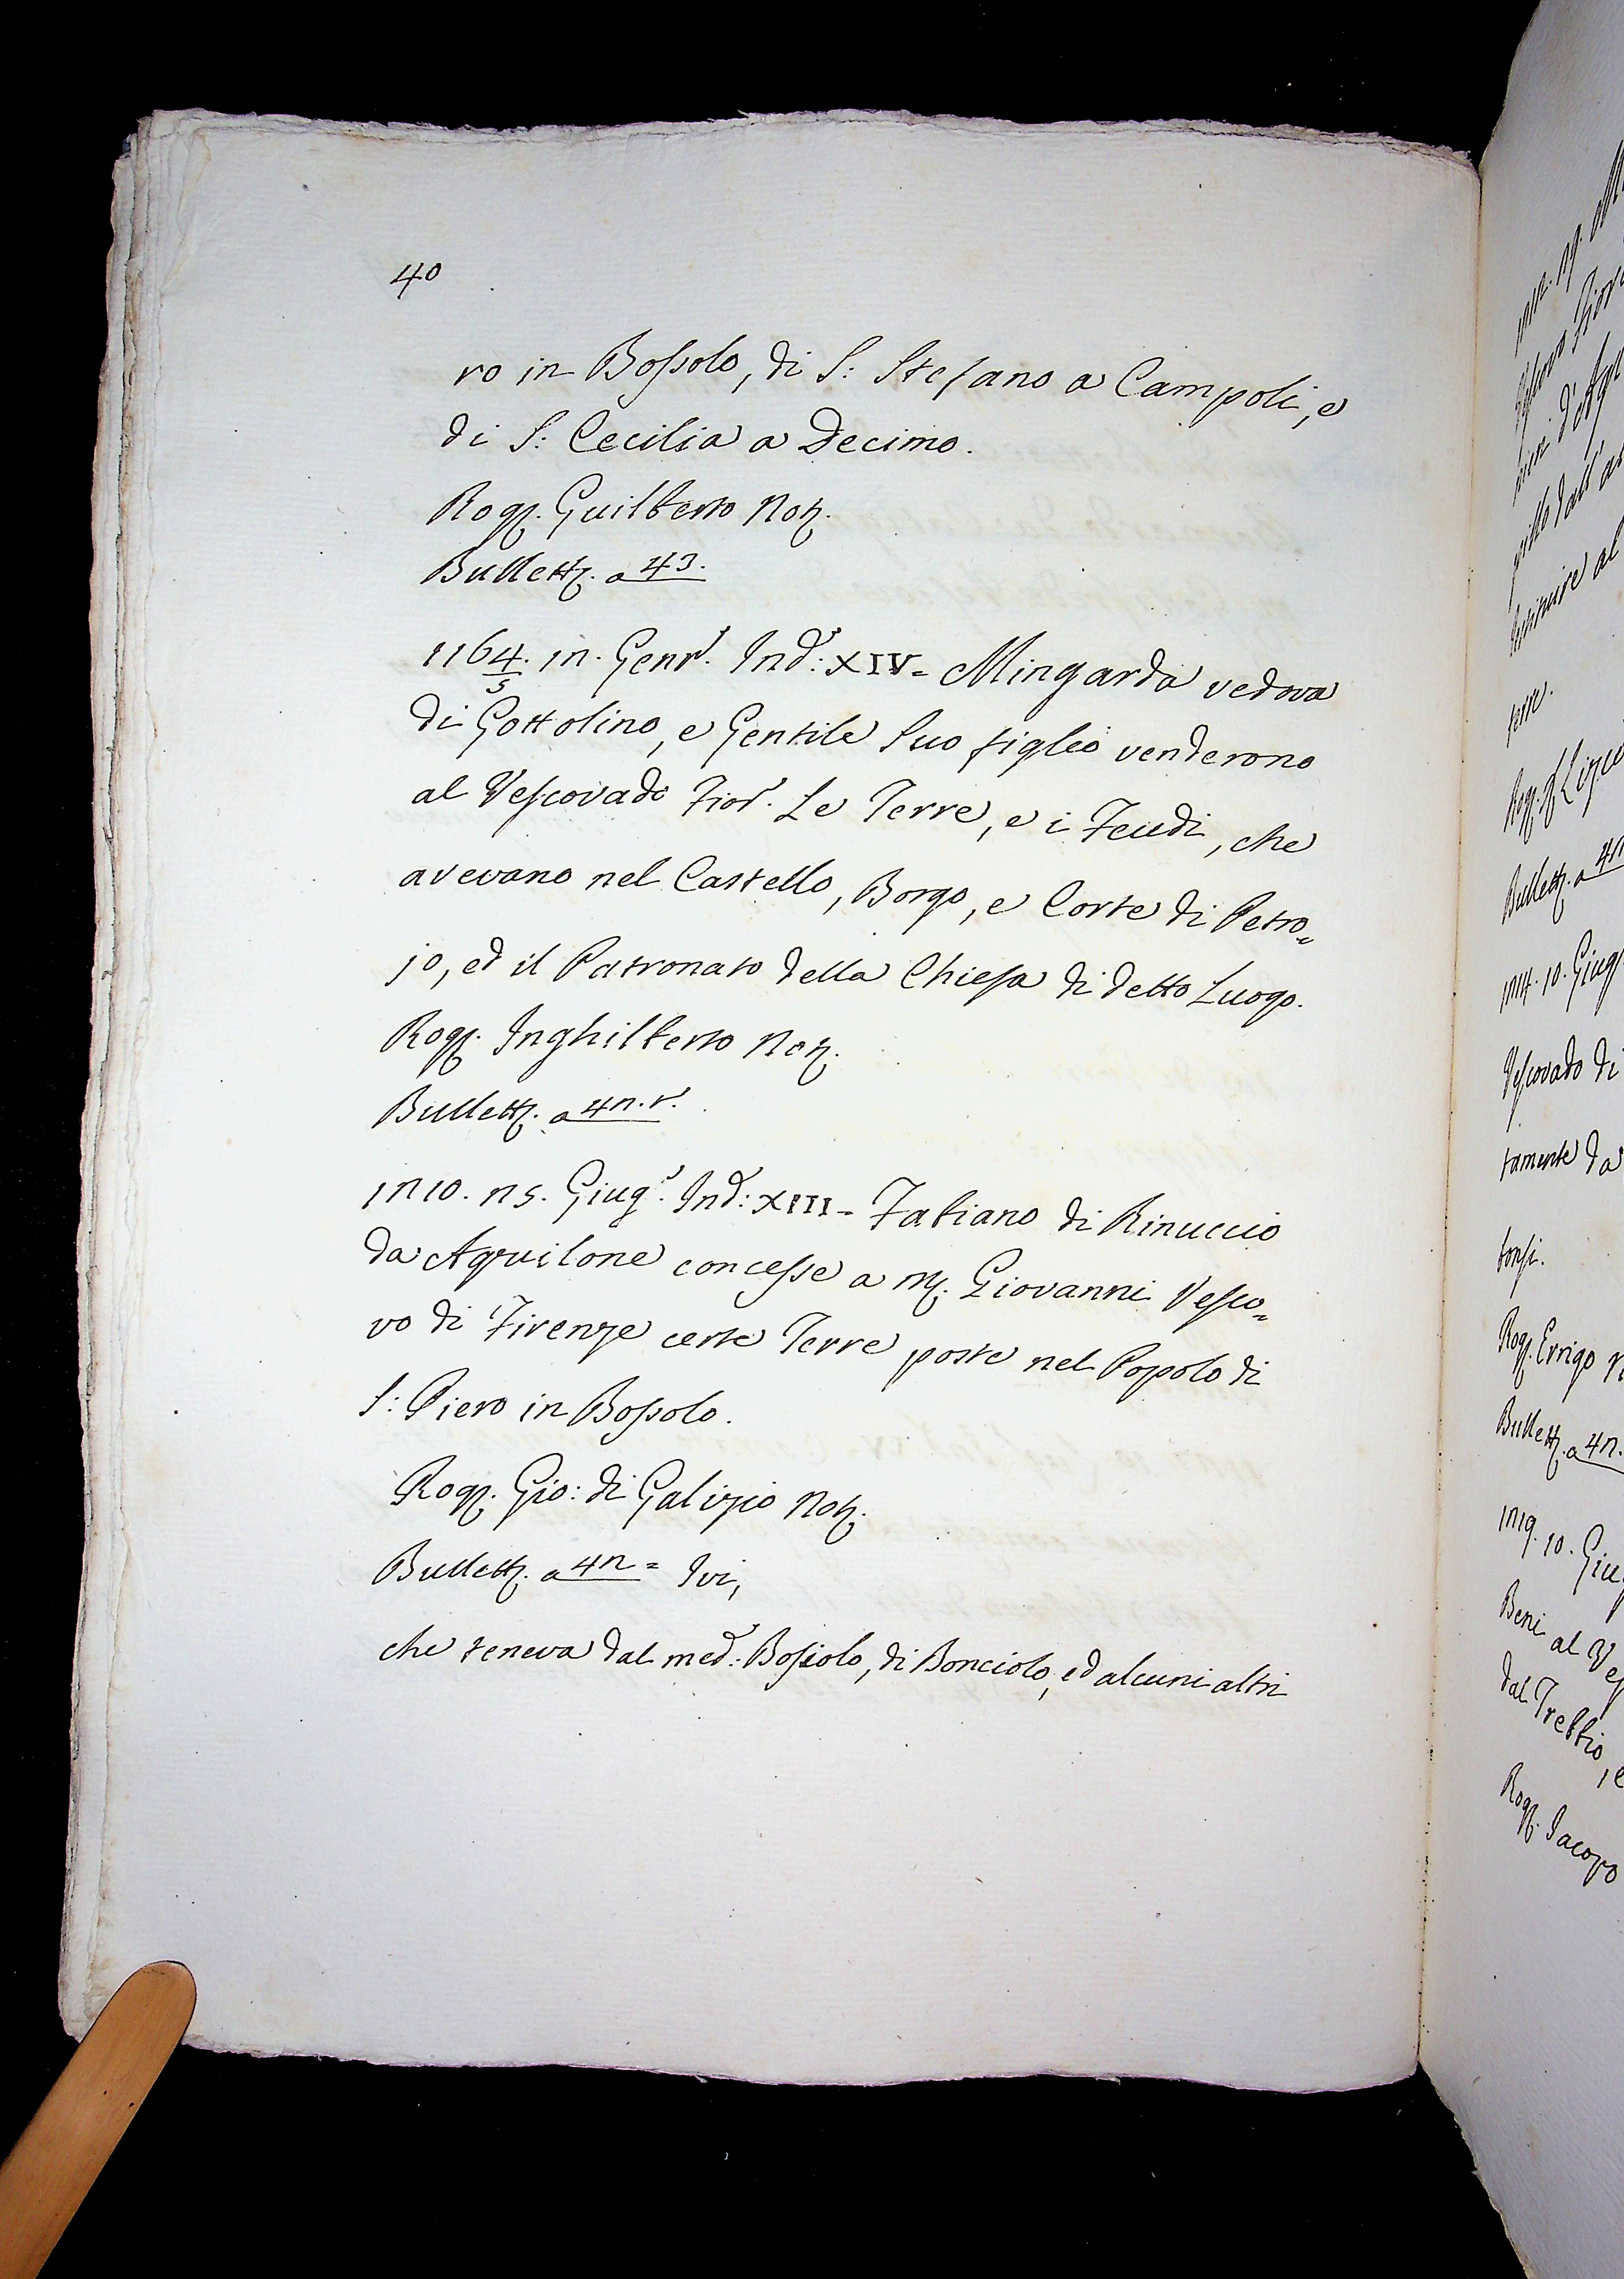 40
ro in Bossolo, di S: Stefano a Campoli, e
di S: Cecilia a Decimo.
Rogg. Guilberto Not.
Bullett. a 43.
1164/5. 12. Genn. Ind: XIV = Mingarda vedova
di Gottolino, e Gentile suo figlio venderono
al Vescovado Fior. Le Terre, e i Feudi, che
avevano nel Castello, Borgo, e Corte di Petro=
jo, ed il Patronato della Chiesa di detto Luogo.
Rogg. Inghilberto Not.
Bullett. a 42. r.
1210. 25. Giug. Ind: XIII = Fabiano di Rinuccio
da Aquilone concesse a M. Giovanni Vesco=
vo di Firenze certe Terre poste nel Popolo di
S: Piero in Bossolo.
Rogg. Gio: di Galizio Not.
Bullett. a 42 = Ivi,
che teneva dal med: Bossolo, di Bonciolo, ed alcuni altri
Rogg.
Bullett. a
1214. 10. Giug
Vescovado di
tamente da
Rogg. Errigo
Bullett. a 42.
1219. 10. Giu
Beni al Ve
dal Trebbio, e
Rogg. Jacopo